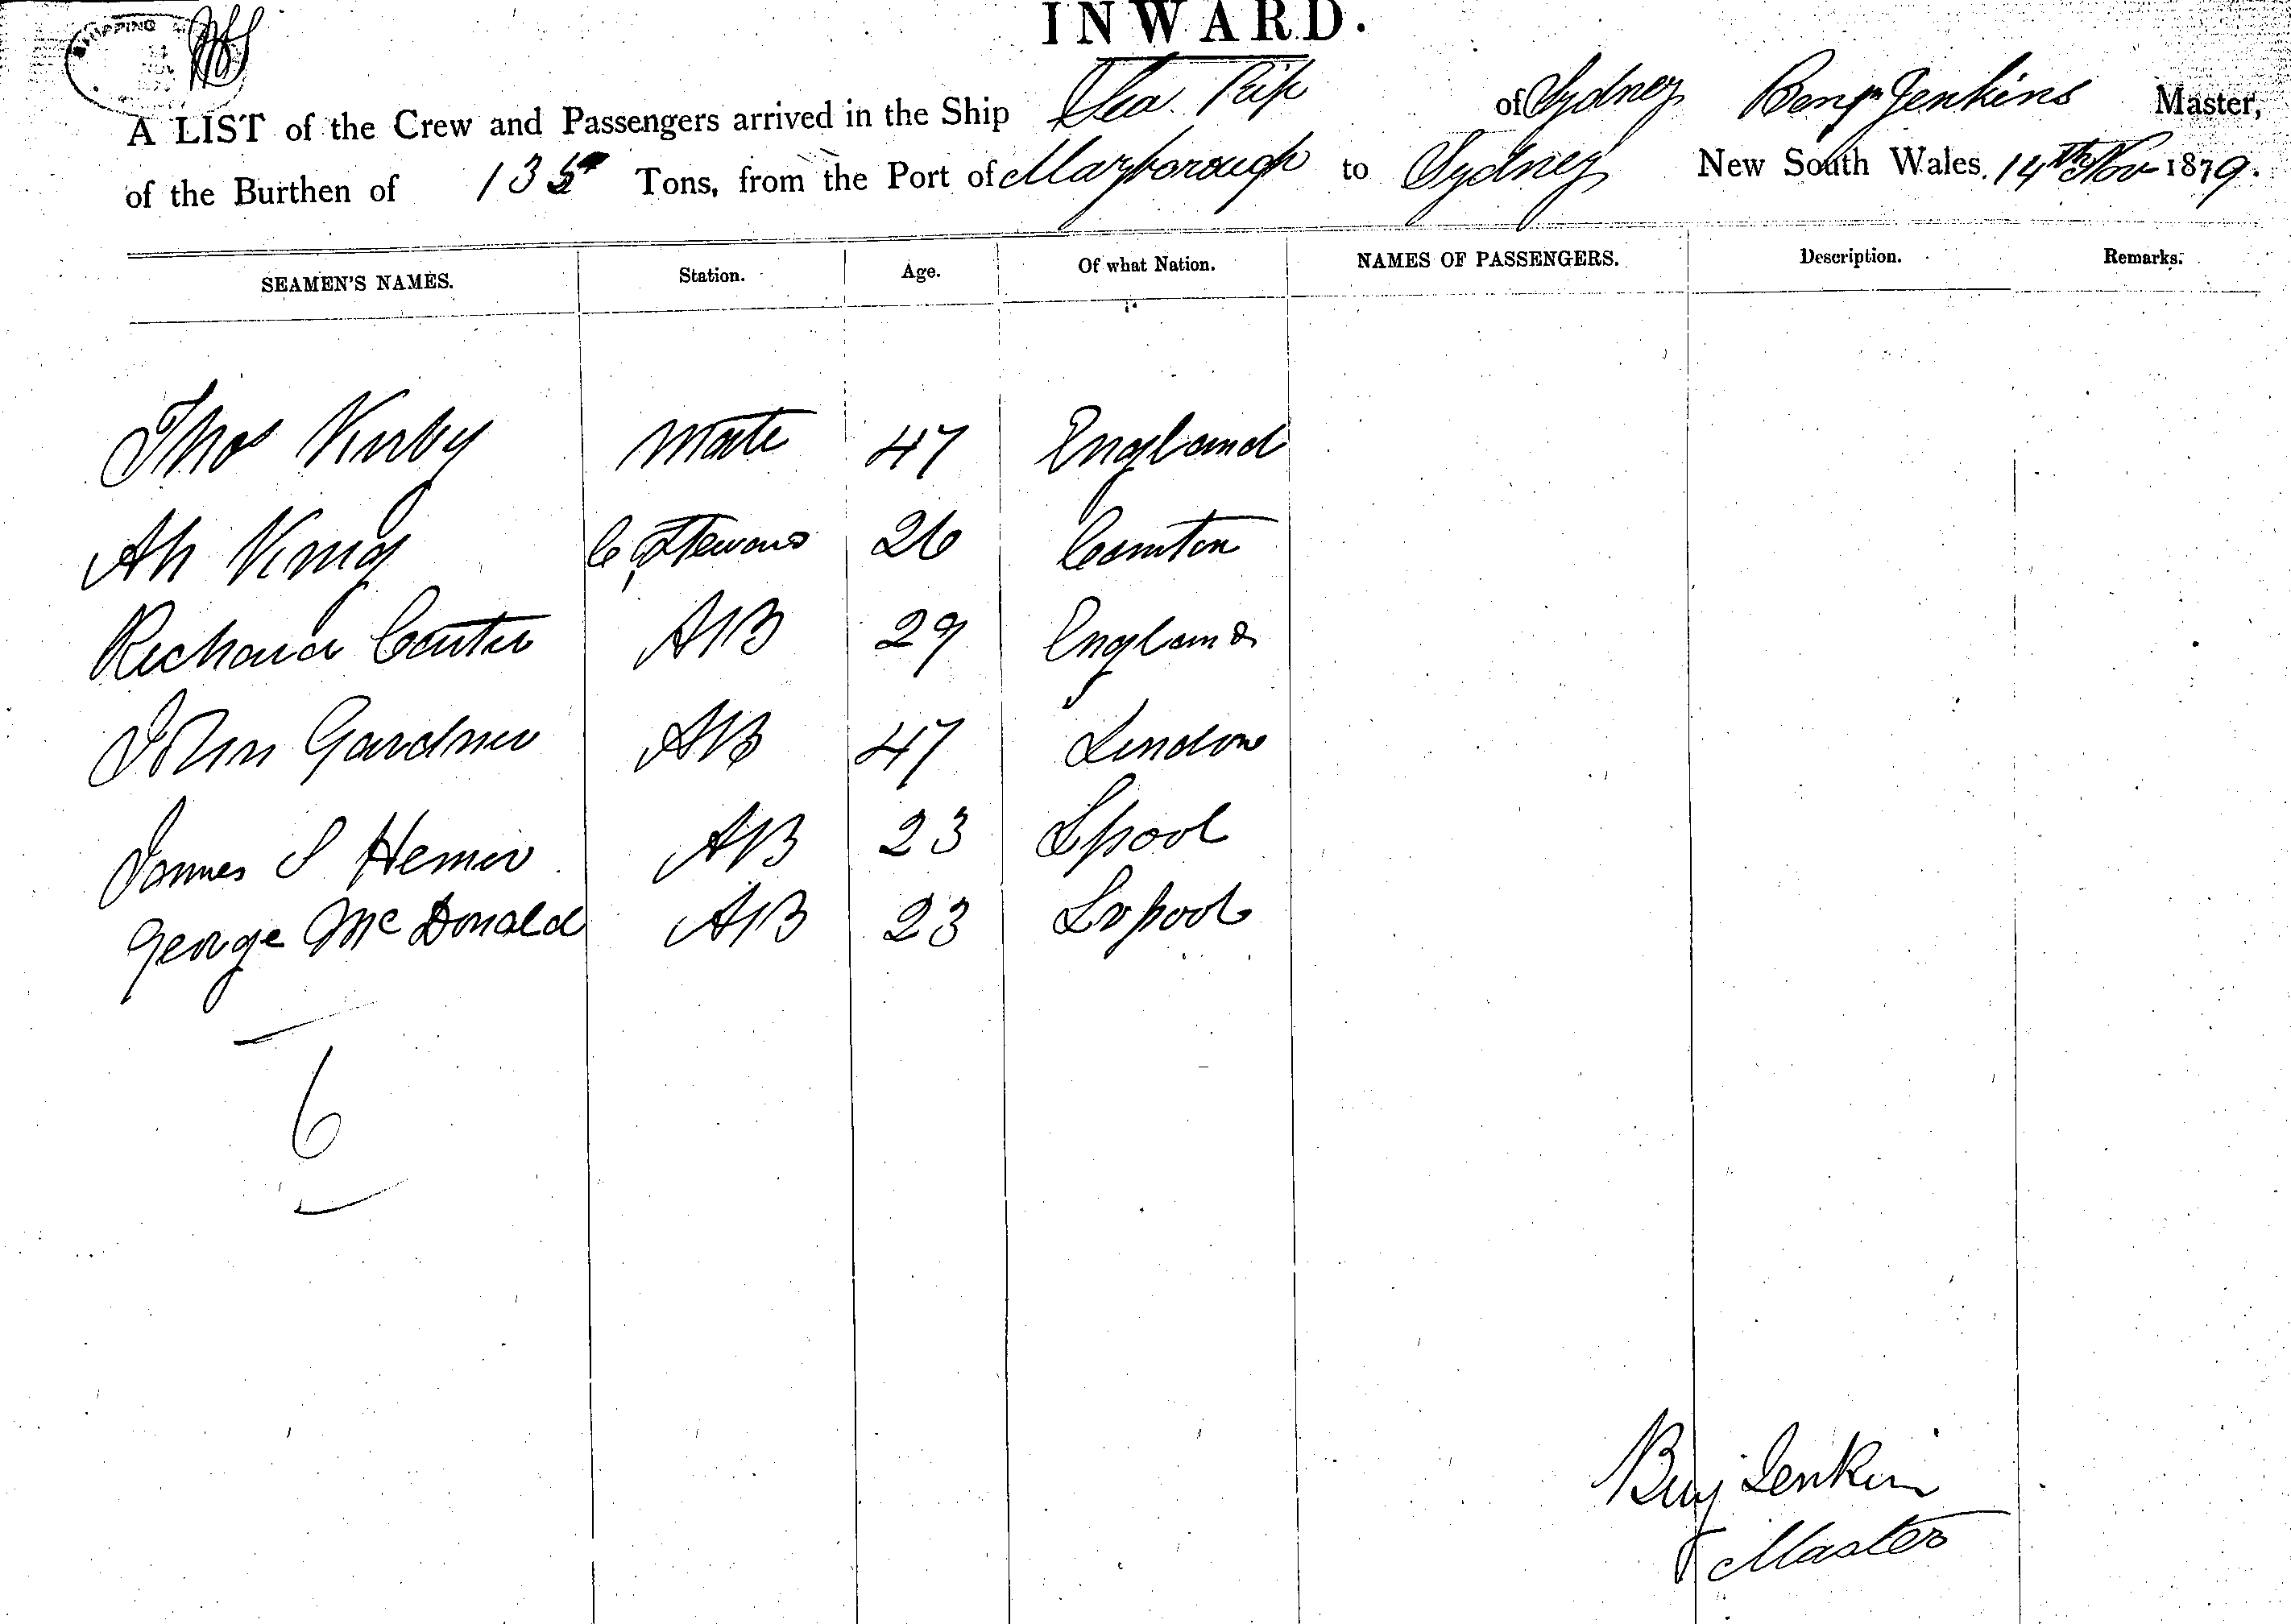 SHIPPING
INWARD.
A LIST of the Crew and Passengers arrived in the Ship Sea Rip of Sydney Benjn Jenkins Master,
of the Burthen of 135 Tons, from the Port of Maryborough to Sydney New South Wales, 14th Nov 1879.
SEAMEN'S NAMES. Station. Age. Of what Nation. NAMES OF PASSENGERS. Description. Remarks.
Thos Kirby Mate 47 England
Ah King C & Steward 26 Canton
Richard Carter AB 29 England
John Gardner AB 47 London
James S AB 23 Lpool
George McDonald AB 23 Lvpool
6
Benj Jenkins
Master